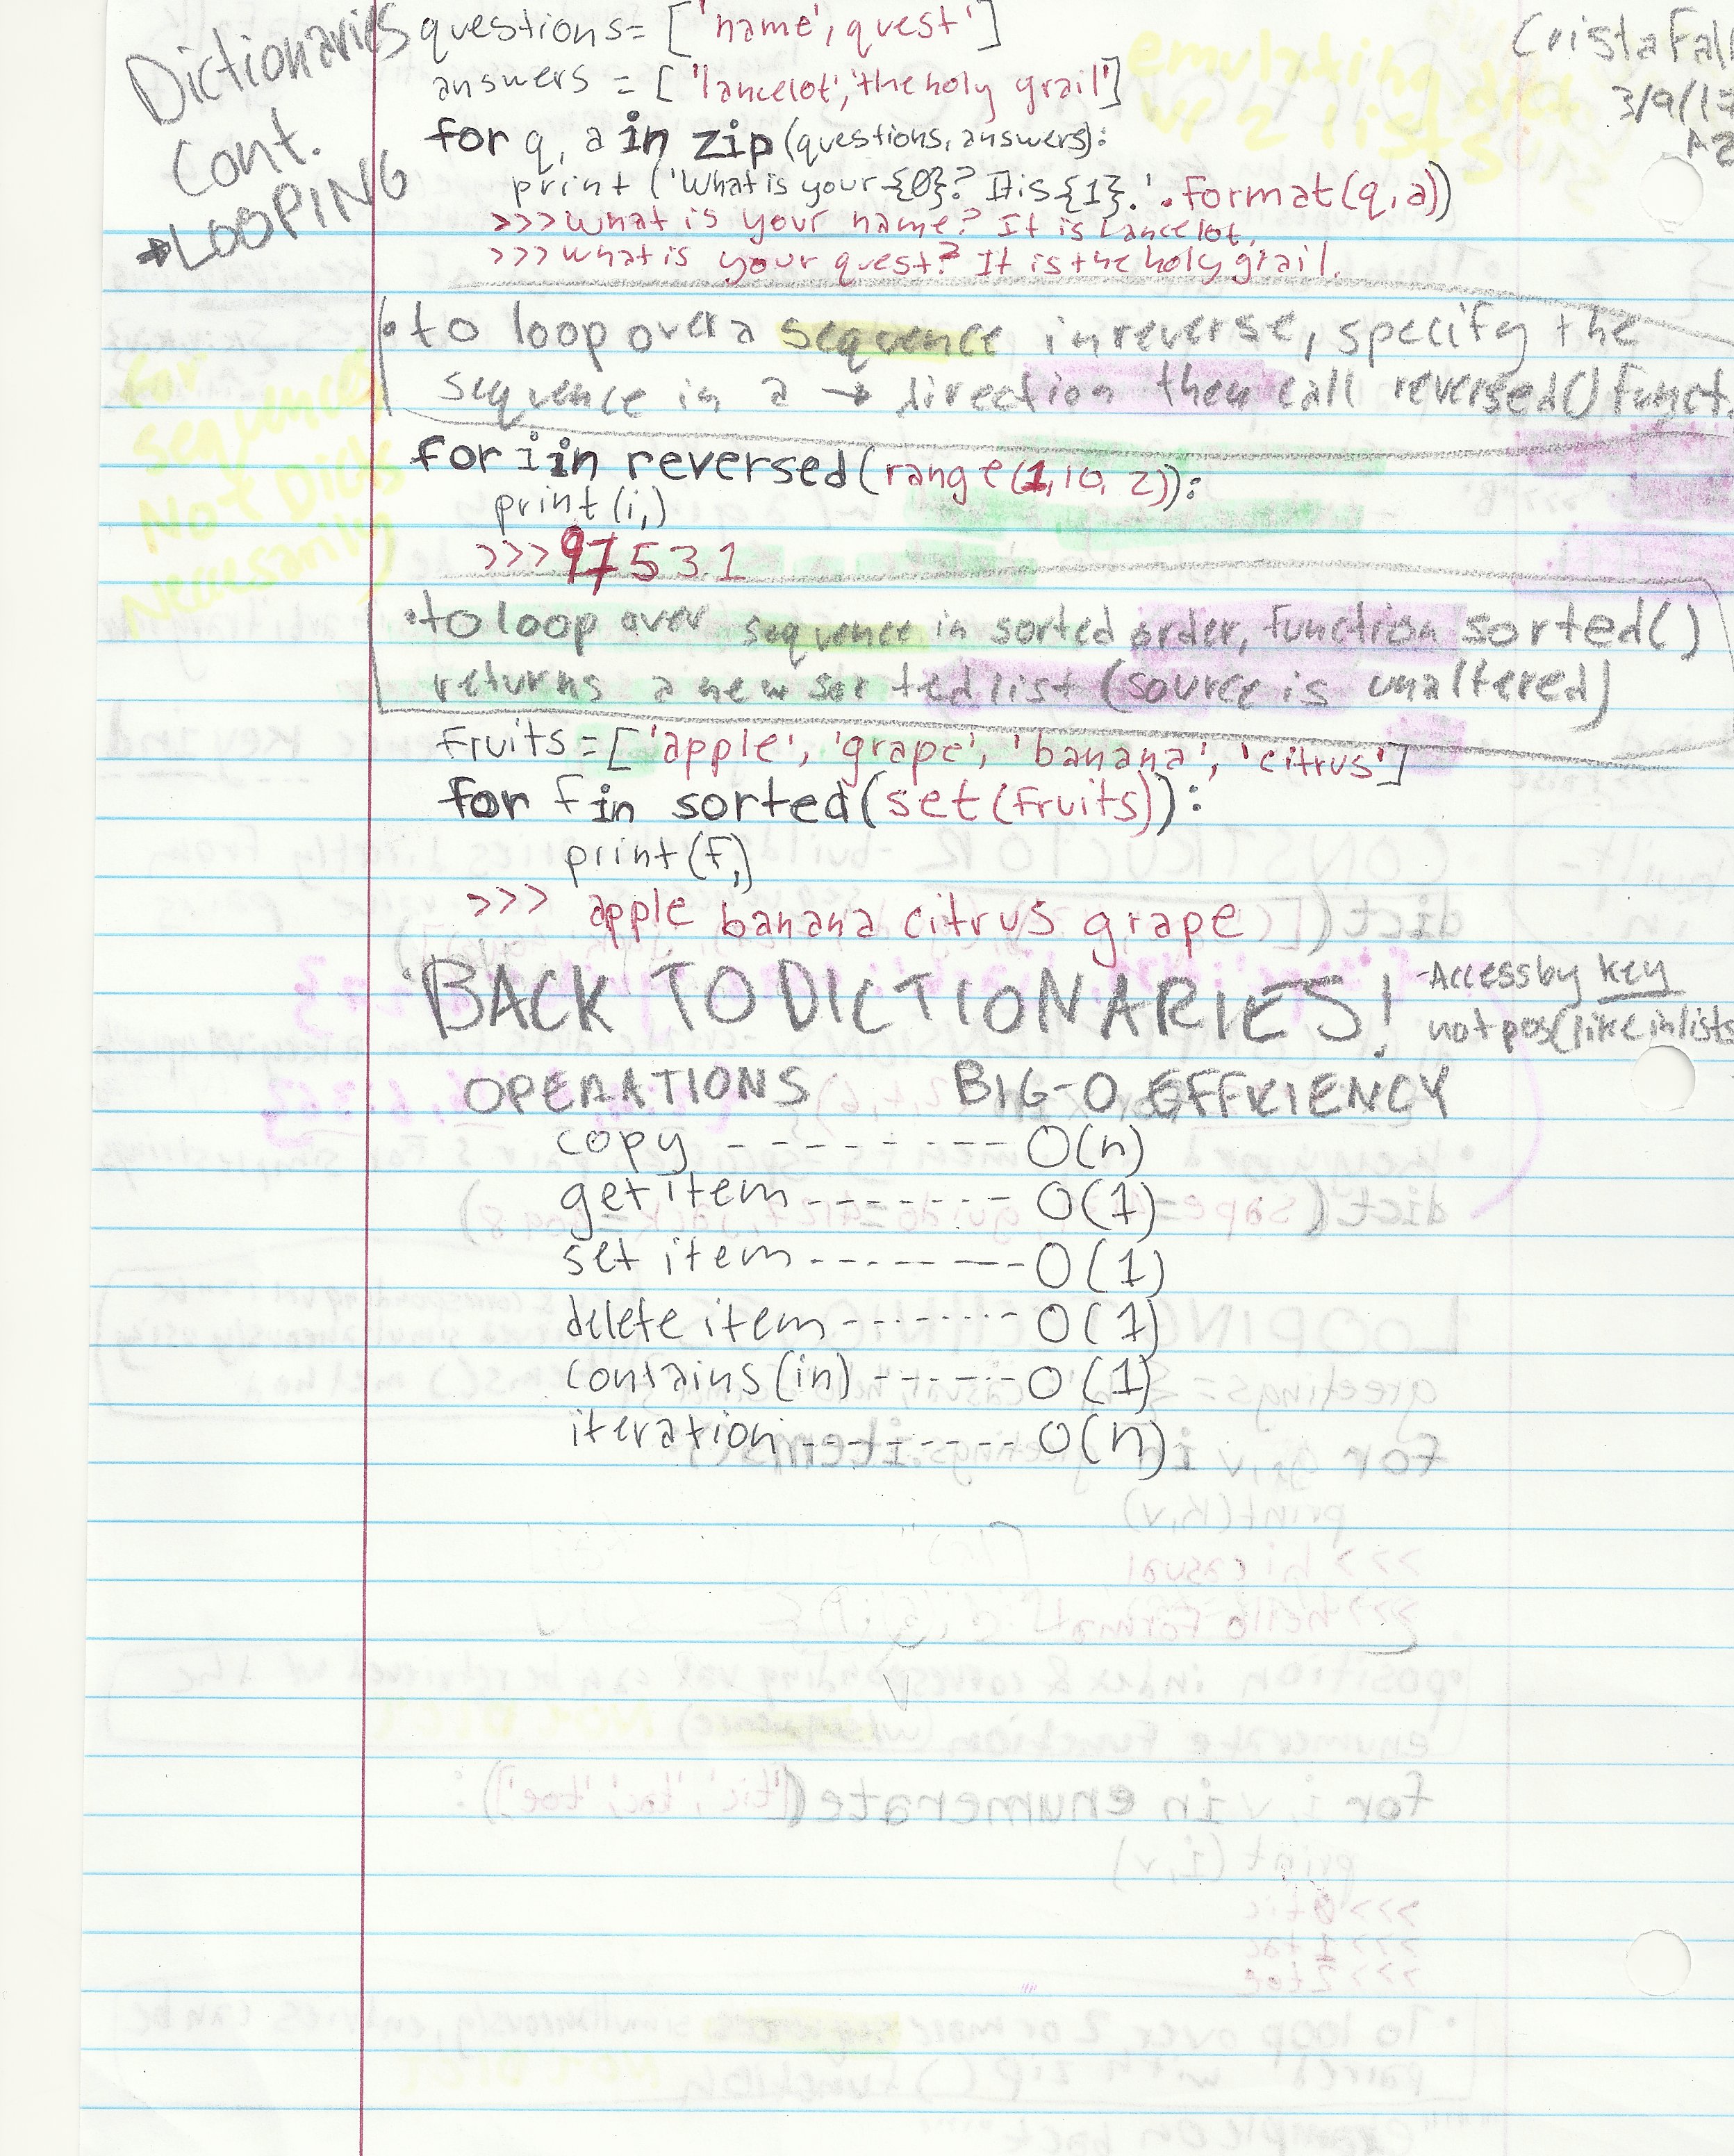 Dictionaries
Cont.
→LOOPING
Crista Fall
3/9/1
A2
questions= ['name', quest']
answers = ['lancelot', 'the holy grail']
emulating dict
w/ 2 lists
for q, a in zip (questions, answers):
print ('What is your {0}? It is {1}.'.format(q,a))
>>> What is your name? It is Lancelot.
>>> What is your quest? It is the holy grail.
• to loop over a sequence in reverse, specify the
sequence in a → direction then call reversed() funct.
for
sequences
Not Dicts
Necessarily
for i in reversed(range(1,10,2)):
print(i,)
>>> 9 7 5 3 1
• to loop over sequence in sorted order, function sorted()
returns a new sorted list (source is unaltered)
fruits = ['apple', 'grape', 'banana', 'citrus']
for f in sorted(set(fruits)):
print(f,)
>>> apple banana citrus grape
• BACK TO DICTIONARIES!
-Access by key
not pos(like in lists
OPERATIONS BIG-O EFFICIENCY
copy --------- O(n)
get item ------- O(1)
set item -------- O(1)
delete item ------- O(1)
contains (in) ------ O(1)
iteration --------- O(n)